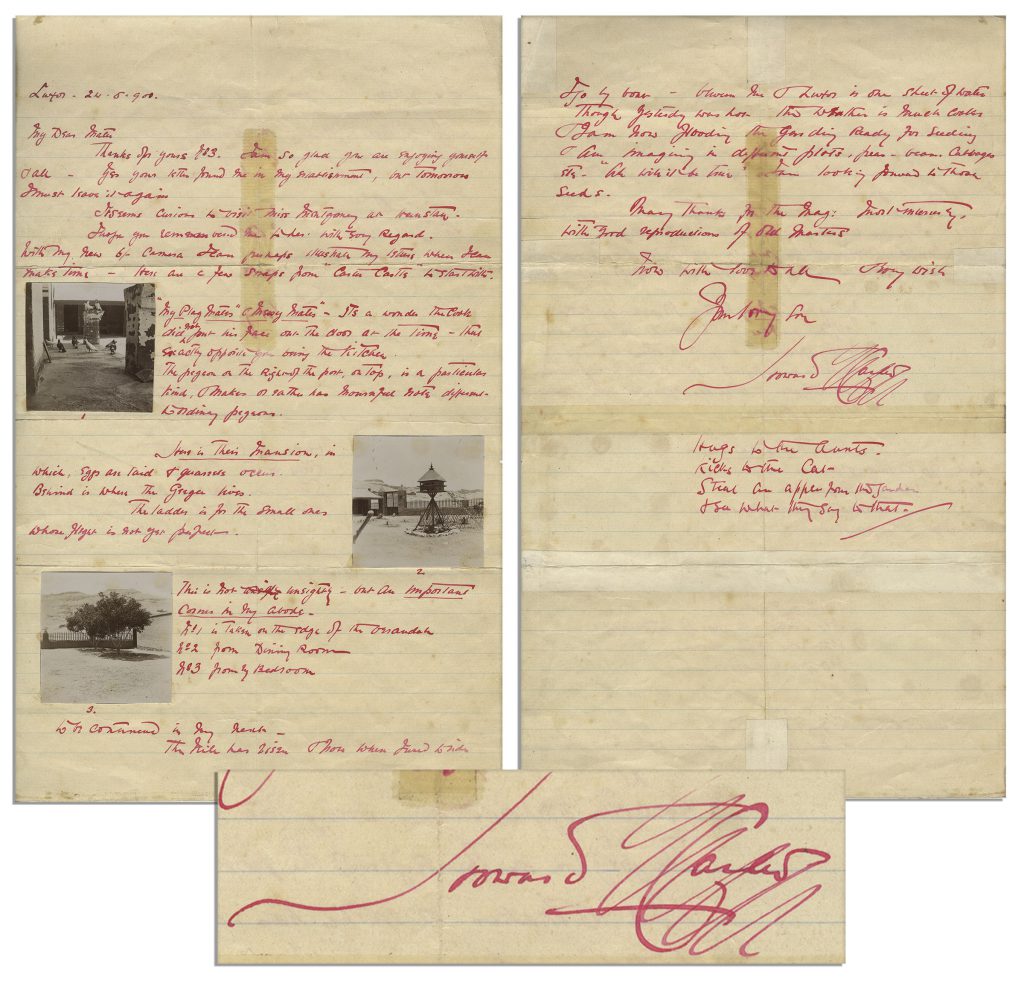 Luxor - 24.5.900.
My Dear Mater
Thanks for yours No3. I am so glad you are enjoying yourself
& all - Yes your letter found me in my establishment, but tomorrow
I must leave it again
It seems curious to visit Miss Montgomery at
I hope you remembered me to her with every Regard.
With my new 6/- Camera I can perhaps illustrate my letters when I can
make time - Here are a few scraps from "Carter Castle" to start with.
"My Play Mates" & Messy Mates" - Its a wonder the Cook
did not put his face out the door at the time - that
exactly opposite you being the Kitchen.
The pegeon on the Right of the post, on top, is a particular
kind, & makes or rather has mournful note different
to ordinary pegeons.
1
Here is Their Mansion, in
which, Eggs are laid & quarrels occur.
Behind is where the lives.
The ladder is for the small ones
whose flight is not yet perfect.
2.
This is not unsightly - but an important
Corner in my abode -
No1 is Taken on the edge of the Verandah
No2 from Dining Room
No3 from my Bedroom
3.
to be continued in my next -
The Nile has risen & now when I
go by boat - between me & Luxor is one sheet of water
Though Yesterday was the weather is much cooler
I am now flooding the Garding Ready for Seeding
& am imagining in different plots, peas - beans Cabbages
etc. "Ah will it be true" I am looking forward to those
Seeds.
Many Thanks for the Mag: Most interesting,
with good reproductions of Old Masters
Now with love to all & every wish
Your loving Son
Howard Carter
Hugs to the Aunts.
Kicks to the Cat -
Steal an apple from the garden
& see what they say to that -
Howard Carter